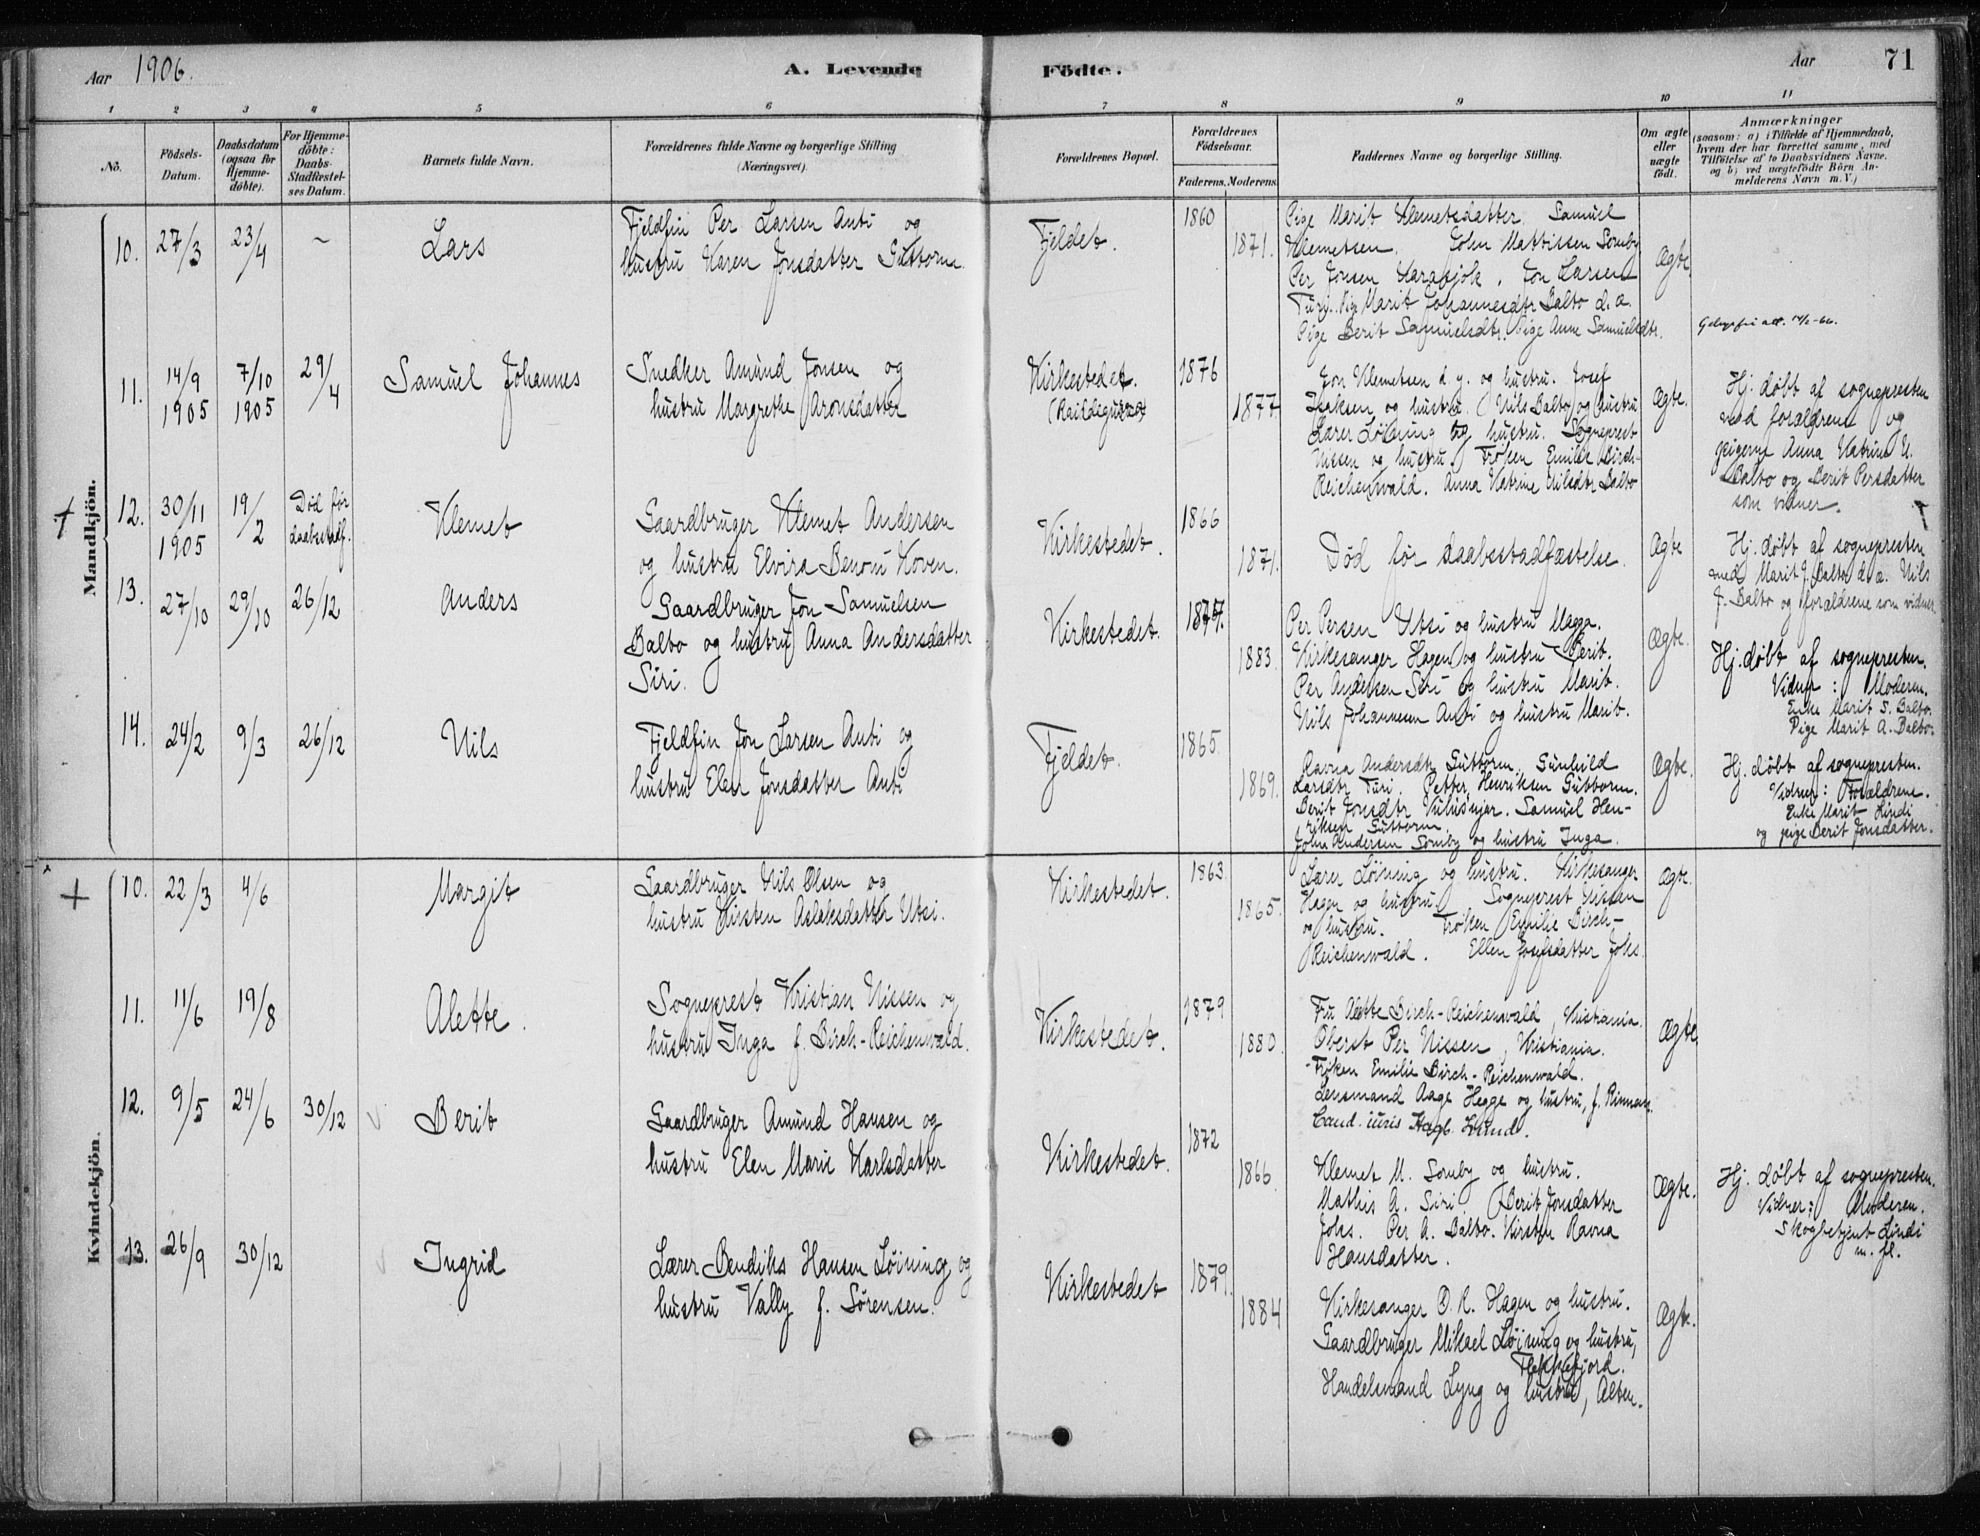 Aar 1906.
A. Levende Fødte.
Aar
71
1 2 3 4 5 6 7 8 9 10 11
No.
Fødsels-Datum.
Daabsdatum (ogsaa for Hjemme-døbte).
For Hjemme-døbte: Daabs-Stadfæstel-ses Datum.
Barnets fulde Navn.
Forældrenes fulde Navne og borgerlige Stilling
(Næringsvei).
Forældrenes Bopæl.
Forældrenes Fødselsaar.
Faderens. Moderens.
Faddernes Navne og borgerlige Stilling.
Om ægte eller uægte født.
Anmærkninger
(saasom: a) i Tilfælde af Hjemmedaab,
hvem der har forrettet samme, med
Tilføielse af to Daabsvidners Navne,
og b) ved uægtefødte Børn An-
melderens Navn m. V.)
Mandkjön.
10. 27/3 23/4 ~ Lars
Fjeldfin Per Larsen Anti og
hustru Karen Jonsdatter Guttorm.
Fjeldet. 1860 1871.
Pige Marit Klemetsdatter Samuel
Klemetsen. John Mattissen Somby
Per Jonsen Karasjok. Jon Larsen
Turi. Pige Marit Johannesdtr Balto d. a.
Pige Berit Samuelsdtr. Pige Anne Samuelsdtr.
Ægte.
11. 14/9 1905 7/10 1905 29/4 Samuel Johannes
Snedker Amund Jonsen og
hustru Margrethe Aronsdatter
Kirkestedet.
1876 1877
Jon Klemetsen d. y. og hustru. Josef
Isaksen og hustru. Nils Balto og hustru
Lærer Løining og hustru. Sogneprest
Nissen og hustru. Frøken Emilie Birch-
Reichenwald. Anna Katrine Nilsdtr Balto
Ægte.
Hj. døbt af sognepresten
med forældrene og
pigerne Anna Katrine N.
Balto og Berit Persdatter
som vidner.
12. 30/11 1905 19/2 Død før daabsstadf. Klemet
Gaardbruger Klemet Andersen
og hustru Elvira Benoni Koven.
Kirkestedet. 1866 1871.
Død før daabsstadfæstelse.
Ægte
Hj. døbt af sognepresten
med Marit J. Balto d. æ. Nils
J. Balto og forældrene som vidner.
13. 27/10 29/10 26/12 Anders
Gaardbruger Jon Samuelsen
Balto og hustru Anna Andersdatter
Siri.
Kirkestedet. 1877. 1883.
Per Persen Utsi og hustru Magga.
Kirkesanger Hagen og hustru Berit.
Per Andersen Siri og hustru Marit.
Nils Johannesen Anti og hustru Marit.
Ægte.
Hj. døbt af sognepresten.
Vidner: Moderen.
Enke Marit S. Balto.
Pige Marit A. Balto.
14. 24/2 9/3 26/12 Nils
Fjeldfin Jon Larsen Anti og
hustru Elen Jonsdatter Anti
Fjeldet. 1865. 1869.
Ravna Andersdtr Guttorm. Gunhild
Larsdtr Turi. Petter Henriksen Guttorm.
Berit Jonsdtr. Samuel Hen-
riksen Guttorm.
John Andersen Somby og hustru Inga.
Ægte.
Hj. døbt af sognepresten.
Vidner: Forældrene.
Enke Marit Lindi
og pige Berit Jonsdatter.
Kvindekjön.
10. 22/3 4/6 Margit
Gaardbruger Nils Olsen og
hustru Kirsten Aslaksdatter Utsi.
Kirkestedet. 1863. 1865.
Lærer Løining og hustru. Kirkesanger
Hagen og hustru. Sogneprest Nissen
og hustru. Frøken Emilie Birch-
Reichenwald. Ellen Josefsdatter Johs.
Ægte.
11. 11/6 19/8 Alette.
Sogneprest Kristian Nissen og
hustru Inga f. Birch-Reichenwald.
Kirkestedet. 1879 1880.
Fru Alette Birch-Reichenwald, Kristiania.
Oberst Per Nissen, Kristiania.
Frøken Emilie Birch-Reichenwald.
Lensmand Aage Hegge og hustru,
Cand. iuris
Ægte.
12. 9/5 24/6 30/12 Berit
Gaardbruger Amund Hansen og
hustru Elen Marie Karlsdatter
Kirkestedet. 1872 1866
Klemet M. Somby og hustru.
Mathis A. Siri. Berit Jonsdatter
Johs. Per A. Balto. Kirsten Ravna
Hansdatter.
Ægte.
Hj. døbt af sognepresten.
Vidner: Moderen.
Skogbetjent Lindi
m. fl.
13. 26/9 30/12 Ingrid
Lærer Bendiks Hansen Løining og
hustru Vally f. Sørensen.
Kirkestedet 1879. 1884
Kirkesanger O. K. Hagen og hustru.
Gaardbruger Mikael Løining og hustru,
Flekkefjord.
Handelsmand Lyng og hustru, Alten.
Ægte.